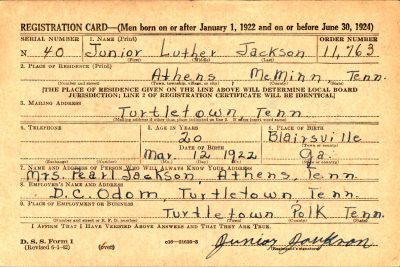 REGISTRATION CARD—(Men born on or after January 1, 1922 and on or before June 30, 1924)
SERIAL NUMBER 1. NAME (Print) ORDER NUMBER
N 40 Junior Luther Jackson 11,763
(First) (Middle) (Last)
2. PLACE OF RESIDENCE (Print)
Athens McMinn Tenn.
(Number and street) (Town, township, village, or city) (County) (State)
[THE PLACE OF RESIDENCE GIVEN ON THE LINE ABOVE WILL DETERMINE LOCAL BOARD
JURISDICTION; LINE 2 OF REGISTRATION CERTIFICATE WILL BE IDENTICAL]
3. MAILING ADDRESS
Turtletown Tenn.
[Mailing address if other than place indicated on line 2. If same insert word same]
4. TELEPHONE 5. AGE IN YEARS 6. PLACE OF BIRTH
20 Blairsville
DATE OF BIRTH
Mar. 12 1922 Ga.
(Exchange) (Number) (Mo.) (Day) (Yr.) (State or country)
7. NAME AND ADDRESS OF PERSON WHO WILL ALWAYS KNOW YOUR ADDRESS
Mrs. Pearl Jackson, Athens, Tenn.
8. EMPLOYER'S NAME AND ADDRESS
D.C. Odom, Turtletown, Tenn.
9. PLACE OF EMPLOYMENT OR BUSINESS
Turtletown Polk Tenn.
(Number and street or R. F. D. number) (Town) (County) (State)
I AFFIRM THAT I HAVE VERIFIED ABOVE ANSWERS AND THAT THEY ARE TRUE.
D. S. S. Form 1
(Revised 6-9-42) (over) Junior Jackson